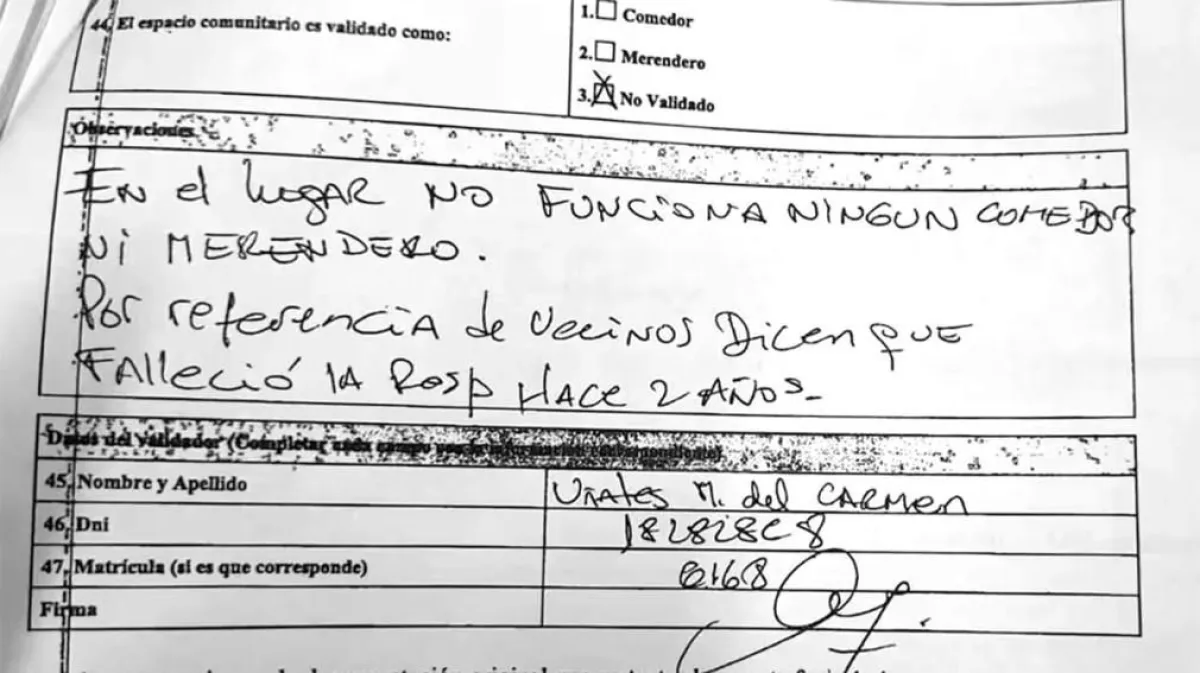 44. El espacio comunitario es validado como:
1. Comedor
2. Merendero
3. No Validado
Observaciones
En el lugar no funciona ningun comedor
ni merendero.
Por referencia de vecinos Dicen que
Falleció la Resp Hace 2 años.
Datos del validador (Completar cada campo con la información correspondiente)
45. Nombre y Apellido
M. del Carmen
46. Dni
47. Matrícula (si es que corresponde)
6168
Firma